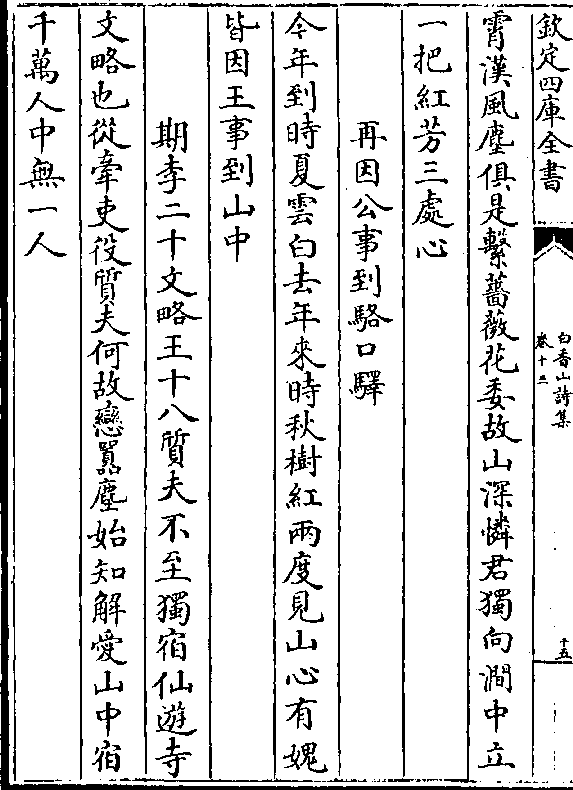 欽定四庫全書
白香山詩集
卷十三
十五
霄漢風塵俱是繫薔薇花委故山深憐君獨向澗中立
一把紅芳三處心
再因公事到駱口驛
今年到時夏雲白去年來時秋樹紅兩度見山心有媿
皆因王事到山中
期李二十文略王十八質夫不至獨宿仙遊寺
文略也從牽吏役質夫何故戀嚣塵始知解愛山中宿
千萬人中無一人